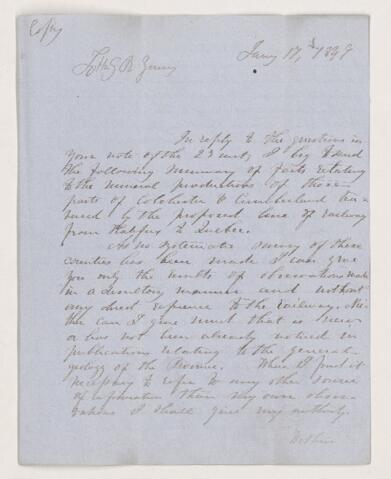 Copy
Jany 17, 
In reply to the questions in
your note of the 2d inst, I beg to send
the following summary of facts relating
to the mineral productions of those
parts of Colchester & Cumberland tra-
versed by the proposed line of railway
from Halifax to Quebec.
As no systematic survey of these
counties has been made I can give
you only the results of observations made
in a desultory manner and without
any direct reference to the railway, nei-
ther can I give much that is new
or has not been already noticed in
publications relating to the general
geology of the Province. When I find it
necessary to refer to any other source
of information than my own obser-
vations I shall give my authority.
Within